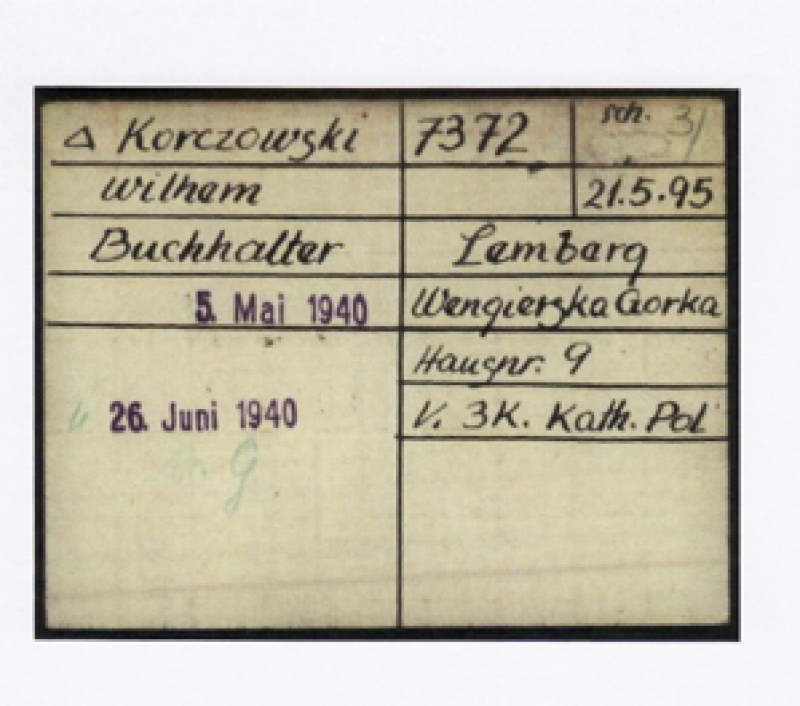 △ Korczowski 7372 sch. 3/
Wilhem 21.5.95
Buchhalter Lemberg
5. Mai 1940 Wengierska Gorka
Hausnr. 9
26. Juni 1940 V. 3K. Kath. Pol